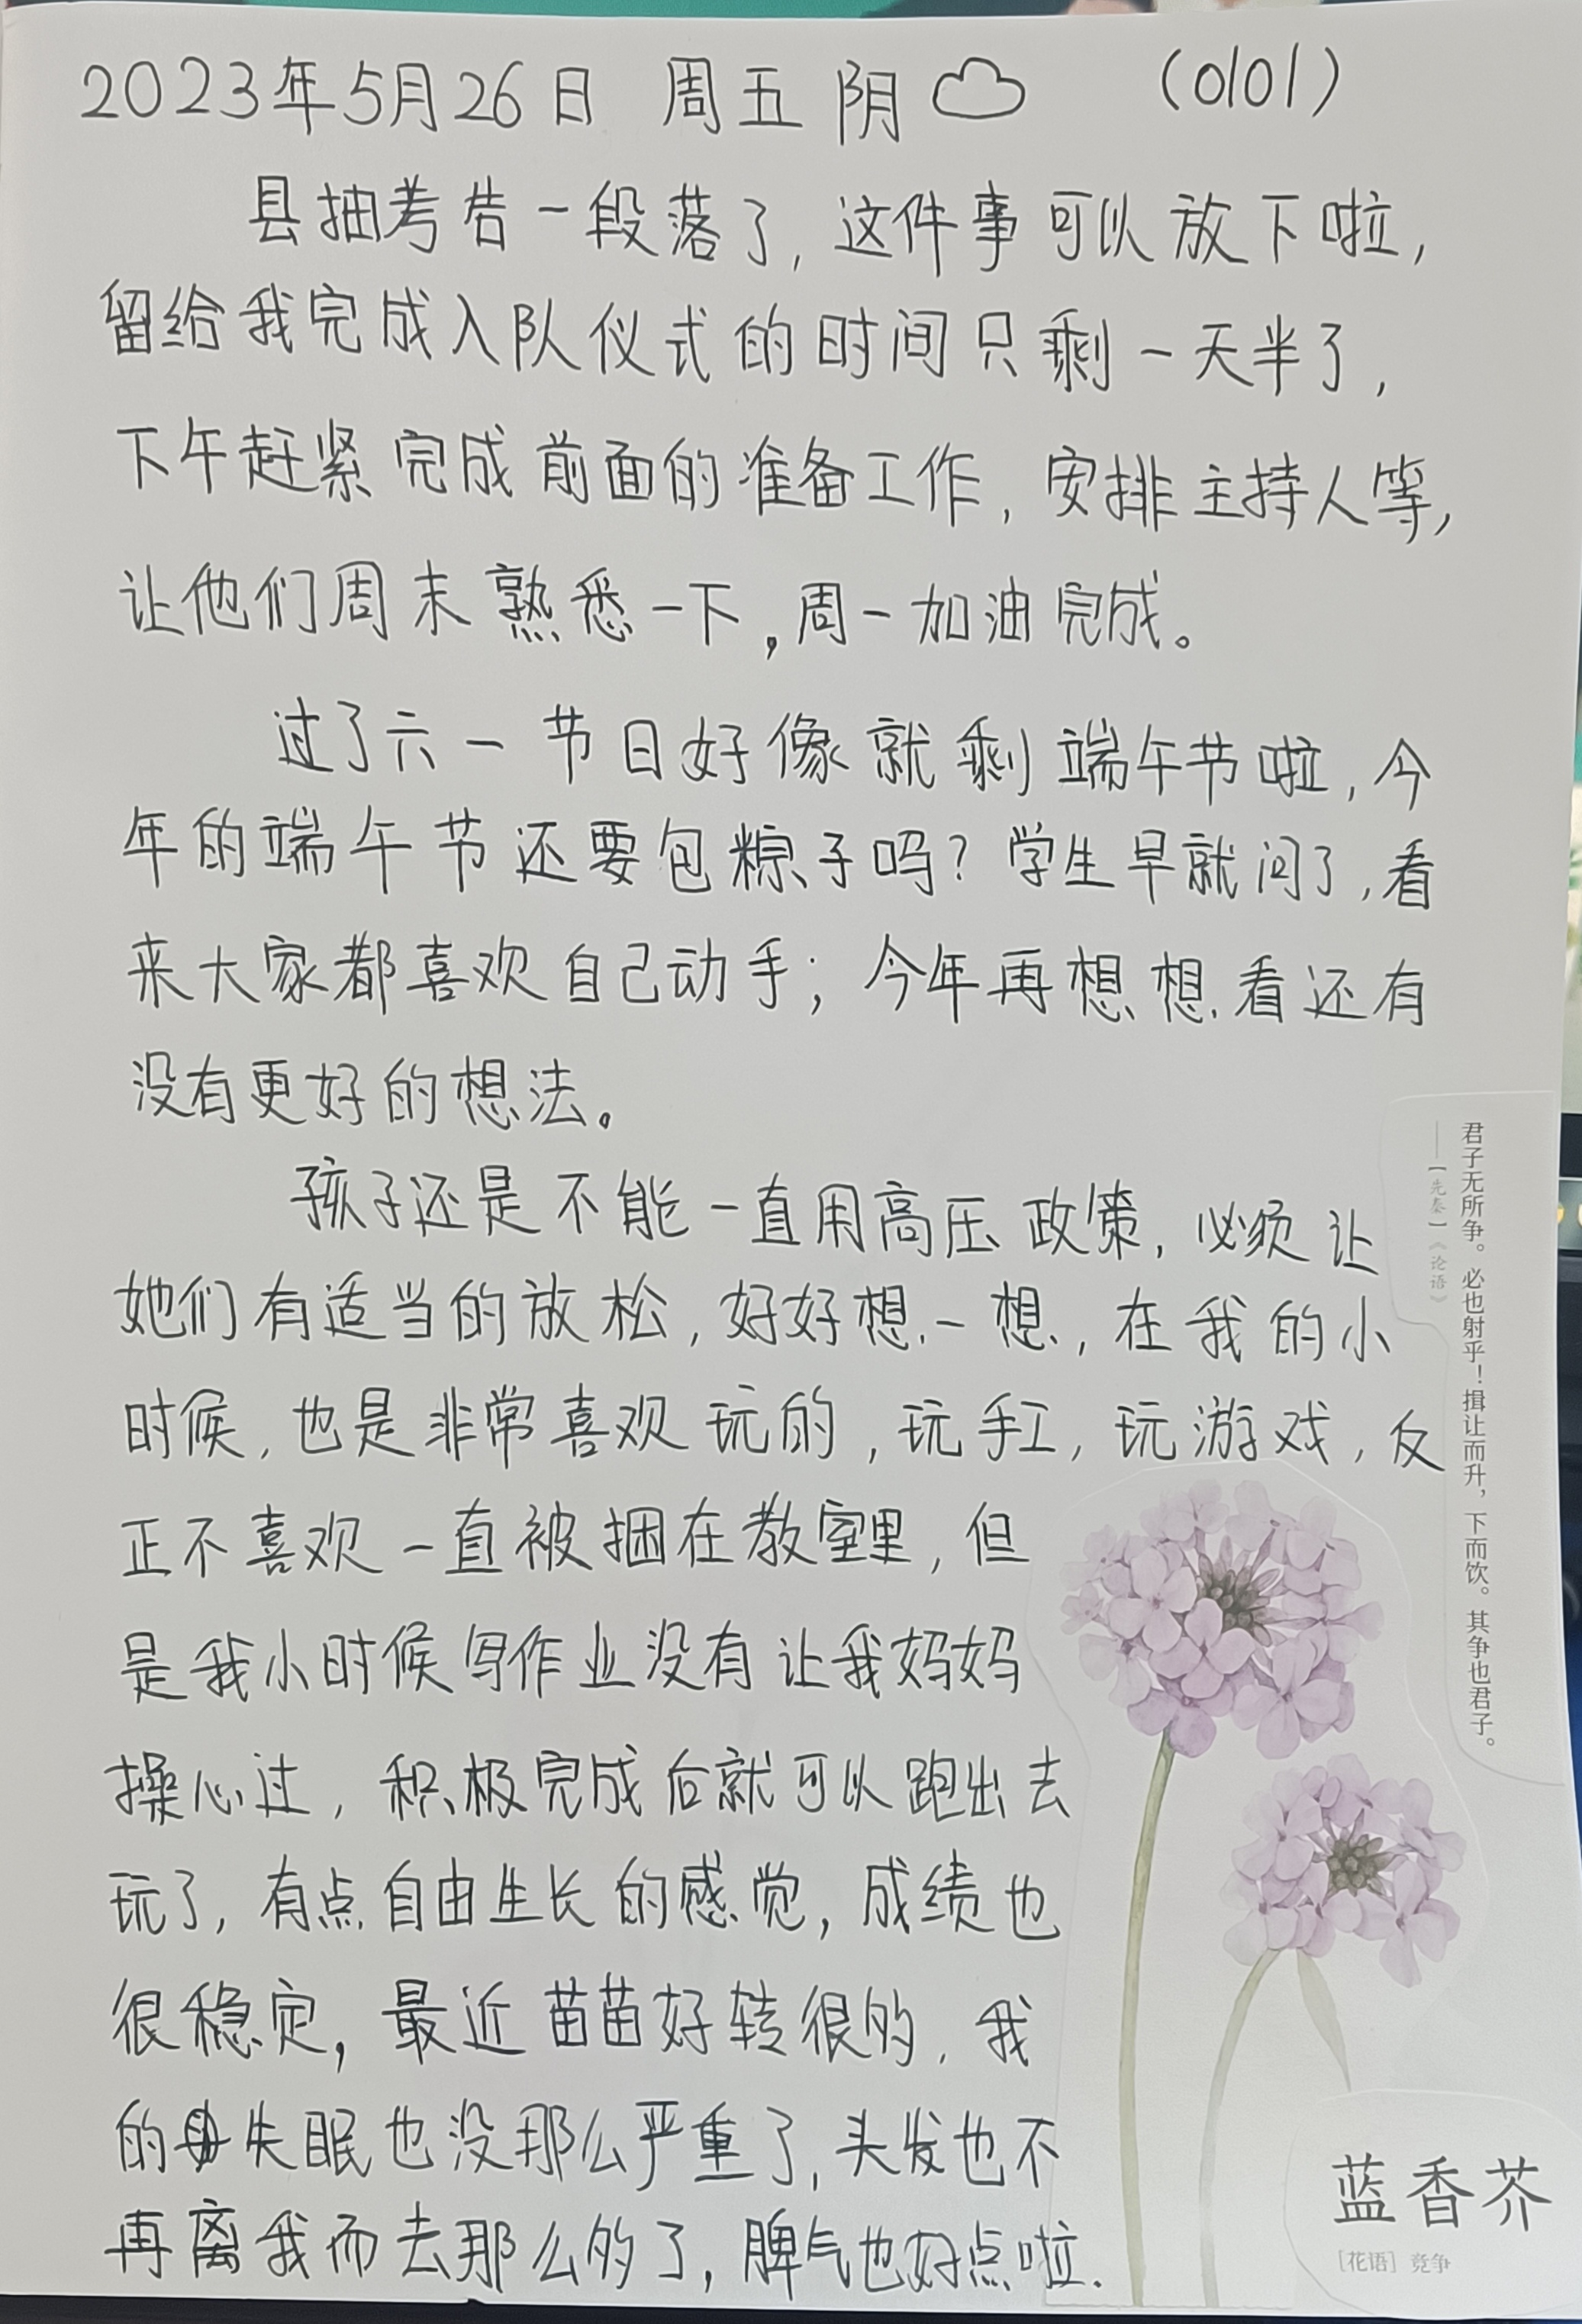 2023年5月26日 周五 阴 (0101)
县抽考告一段落了，这件事可以放下啦，
留给我完成入队仪式的时间只剩一天半了，
下午赶紧完成前面的准备工作，安排主持人等，
让他们周末熟悉一下，周一加油完成。
过了六一节日好像就剩端午节啦，今
年的端午节还要包粽子吗？学生早就问了，看
来大家都喜欢自己动手；今年再想想看还有
没有更好的想法。
孩子还是不能一直用高压政策，必须让
她们有适当的放松，好好想一想，在我的小
时候，也是非常喜欢玩的，玩手工，玩游戏，反
正不喜欢一直被捆在教室里，但
是我小时候写作业没有让我妈妈
操心过，积极完成后就可以跑出去
玩了，有点自由生长的感觉，成绩也
很稳定，最近苗苗好转很的，我
的失眠也没那么严重了，头发也不
再离我而去那么的了，脾气也好点啦.
君子无所争。必也射乎！揖让而升，下而饮。其争也君子。
——［先秦］《论语》
蓝香芥
［花语］竞争